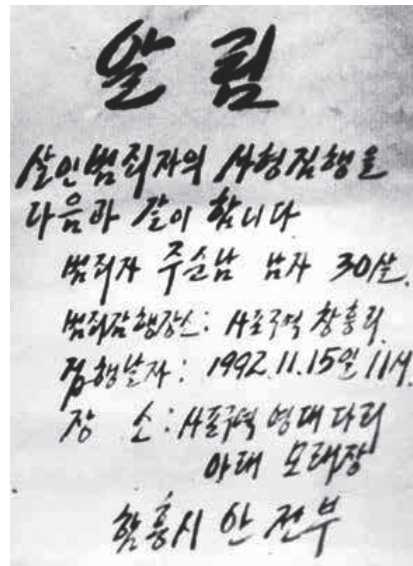 알 림
살인범죄자의 사형집행을
다음과 같이 합니다
범죄자 주순남 남자 30살.
범죄감행장소: 사포구역 창흥리
집행날자: 1992.11.15일 11시.
장 소: 사포구역 영대다리
아래 모래장
함흥시 안전부